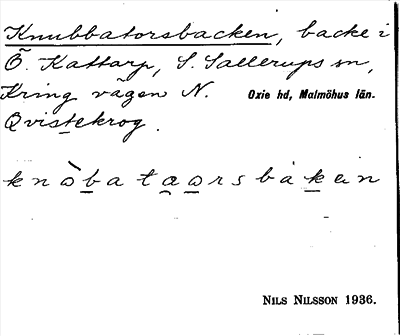 Knubbatorsbacken, backe i
Ö. Kattarp, S. Sallerups sn,
Kring vägen N. Oxie hd, Malmöhus län.
Qvistekrog.
knòbataorsbakein
NILS NILSSON 1936.